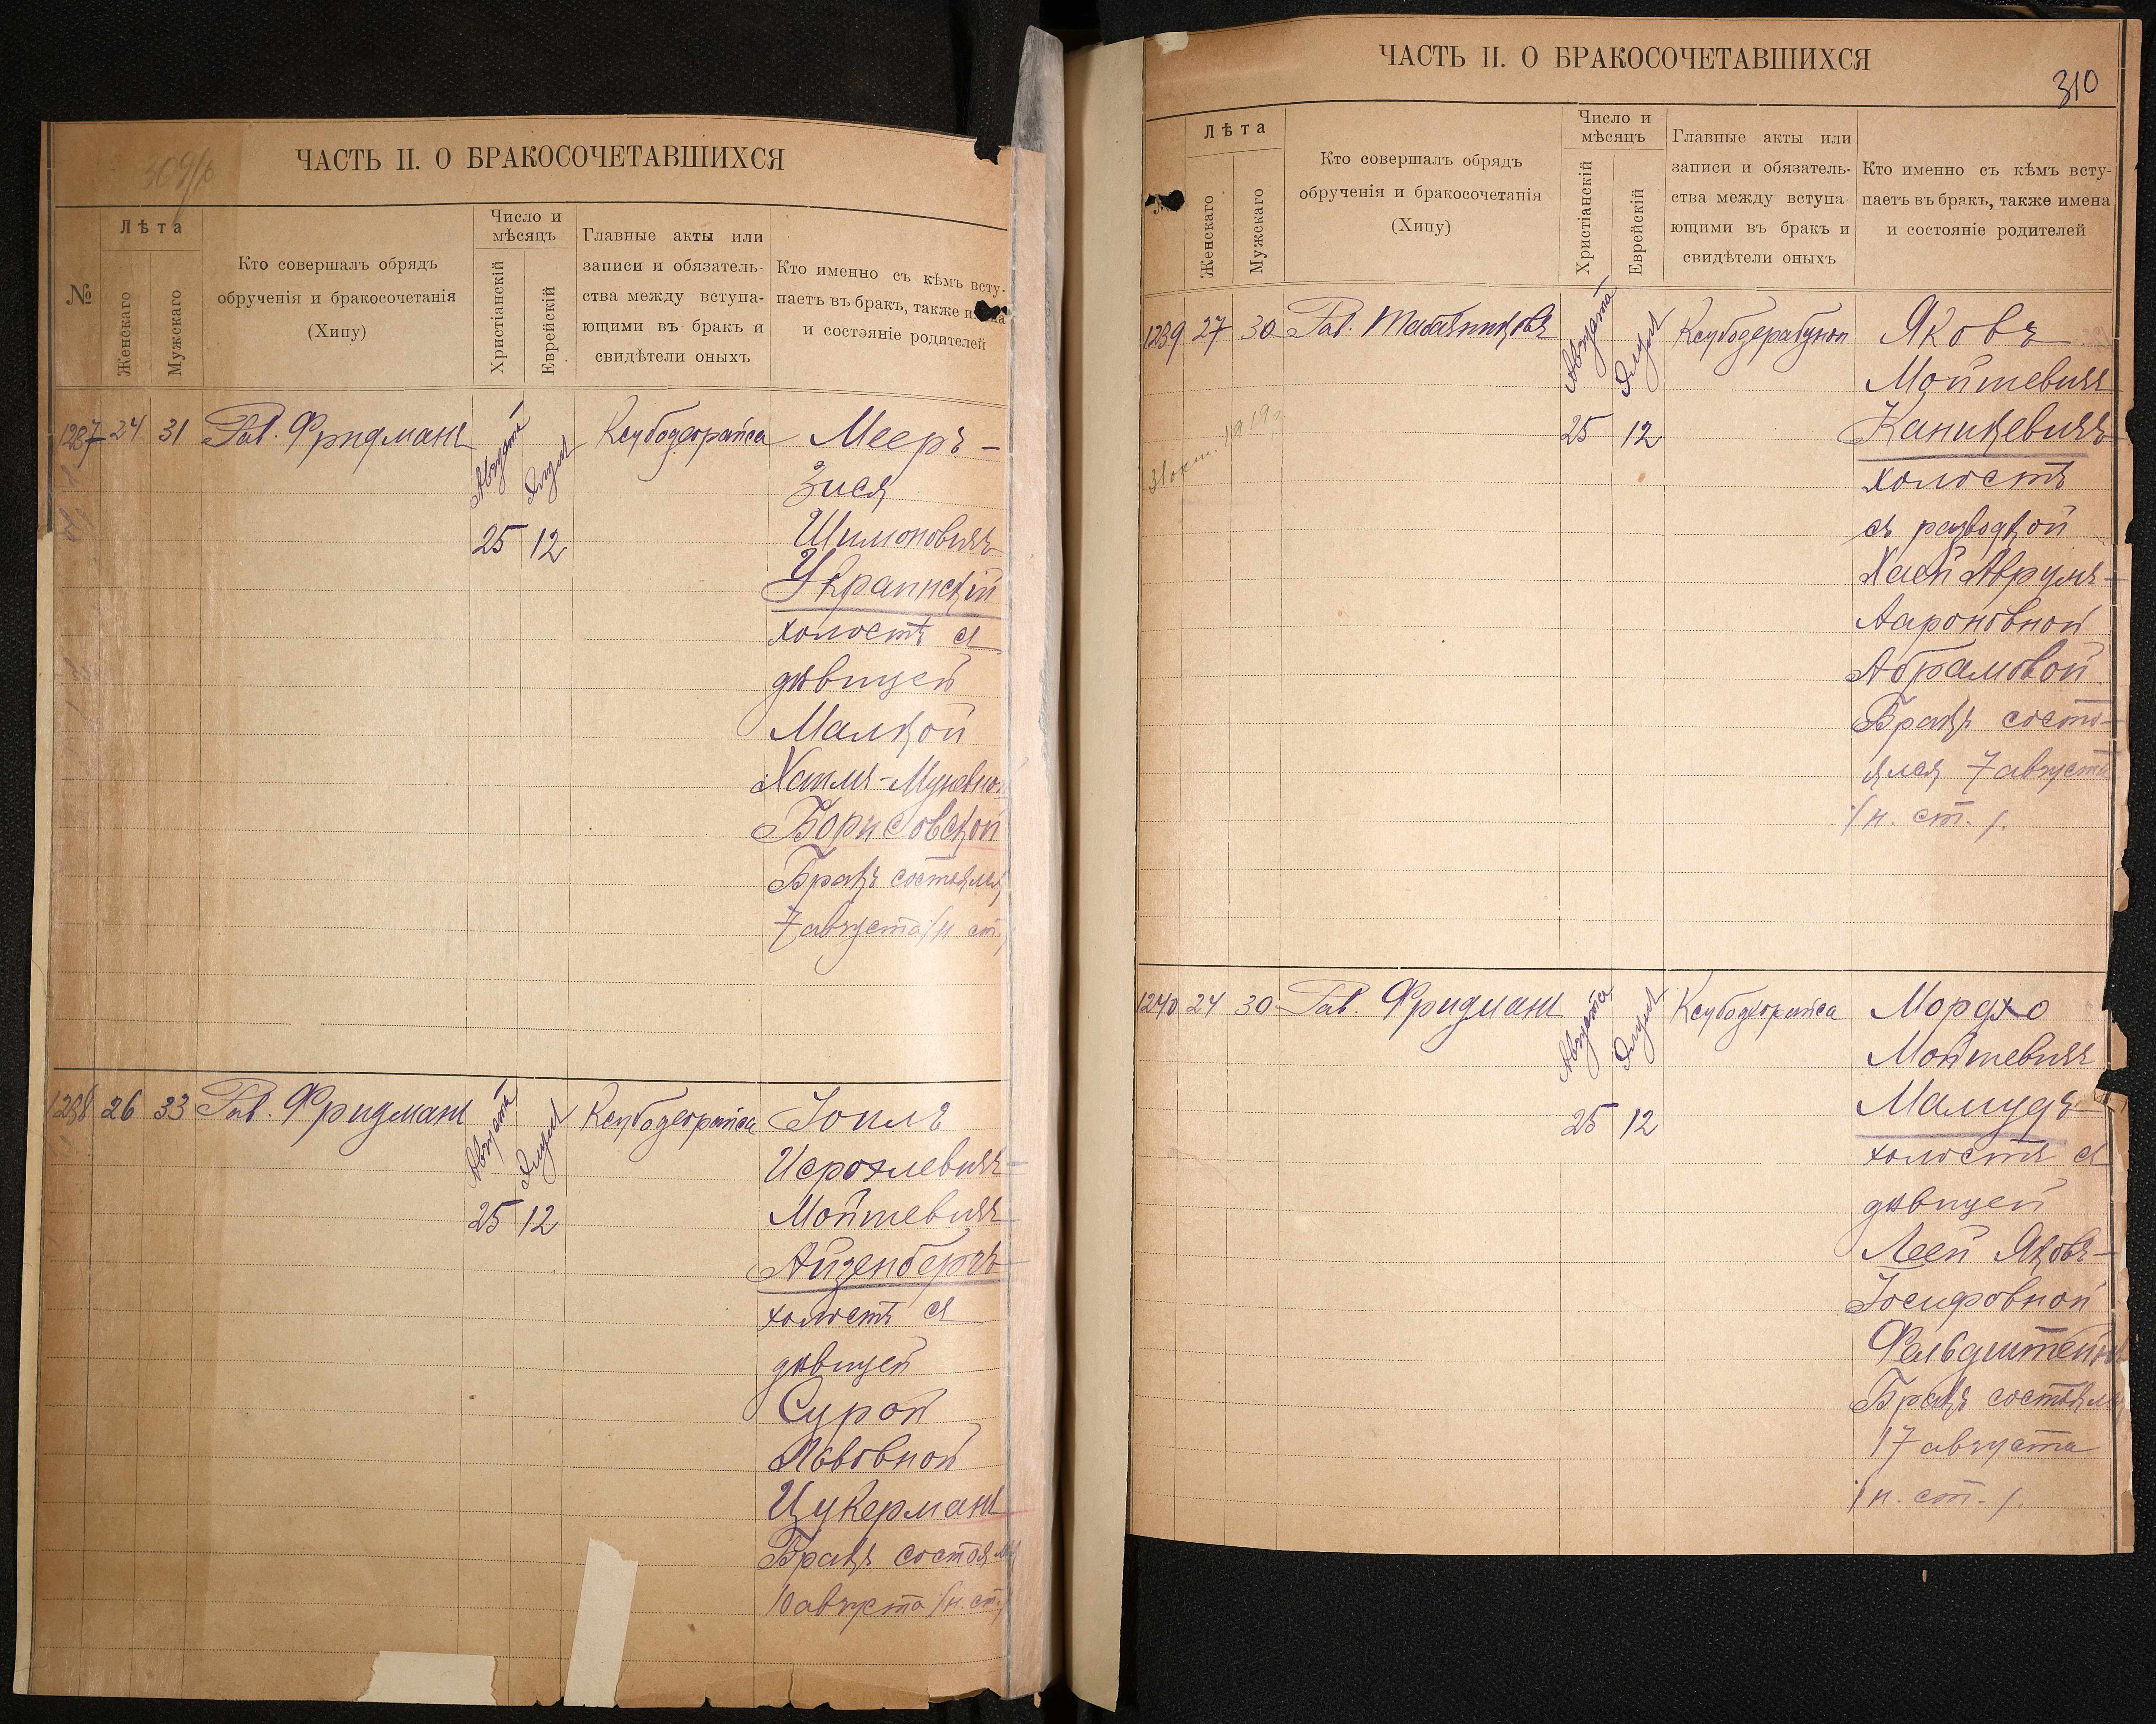 309/об
ЧАСТЬ II. О БРАКОСОЧЕТАВШИХСЯ
№
Лѣта
Женскаго
Мужскаго
Кто совершалъ обрядъ
обрученія и бракосочетанія
(Хипу)
Число и
мѣсяцъ
Христіанскій
Еврейскій
Главные акты или
записи и обязатель-
ства между вступа-
ющими въ бракъ и
свидѣтели оныхъ
Кто именно съ кѣмъ всту-
паетъ въ бракъ, также
и состэяніе родителей
1237 24 31 Рав. Фридманъ
Августа
Элула
25 12
Ксубодеорайса
Мееръ-
Зися
Шимоновичъ
Украинскій
холостъ съ
дѣвицей
Малкой
Хаимъ-
Борисовской
Бракъ состоялся
7 августа /н. ст./
1238 26 33 Рав. Фридманъ
Августа
Элула
25 12
Ксубодеорайса
Іоилъ
Исролевичъ-
Мойшевичъ
Айзенбергъ
холостъ съ
дѣвицей
Сурой
Львовной
Цукерманъ
Бракъ состоялся
10 августа /н. ст./
ЧАСТЬ II. О БРАКОСОЧЕТАВШИХСЯ
310
Лѣта
Женскаго
Мужскаго
Кто совершалъ обрядъ
обрученія и бракосочетанія
(Хипу)
Число и
мѣсяцъ
Христіанскій
Еврейскій
Главные акты или
записи и обязатель-
ства между вступа-
ющими въ бракъ и
свидѣтели оныхъ
Кто именно съ кѣмъ всту-
паетъ въ бракъ, также имена
и состояніе родителей
1239 27 30 Рав. Табачниковъ
Августа
Элула
25 12
31 окт. 1919 г.
Ксубодерабунон
Яковъ
Мойшевичъ
Каницкевичъ
холостъ
съ разводкой
Хаей Аврумъ-
Аароновной
Абрамовой
Бракъ состо-
ялся 7 августа
/н. ст./.
1240 24 30 Рав. Фридманъ
Августа
Элула
25 12
Ксубодеорайса
Мордхо
Мойшевичъ
Мамудъ
холостъ съ
дѣвицей
Леей Яковъ-
Іосифовной
Фельдштейнъ
Бракъ состоялся
17 августа
/н. ст./.